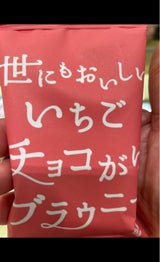 世にもおいしい
いちご
チョコがけ
ブラウニー